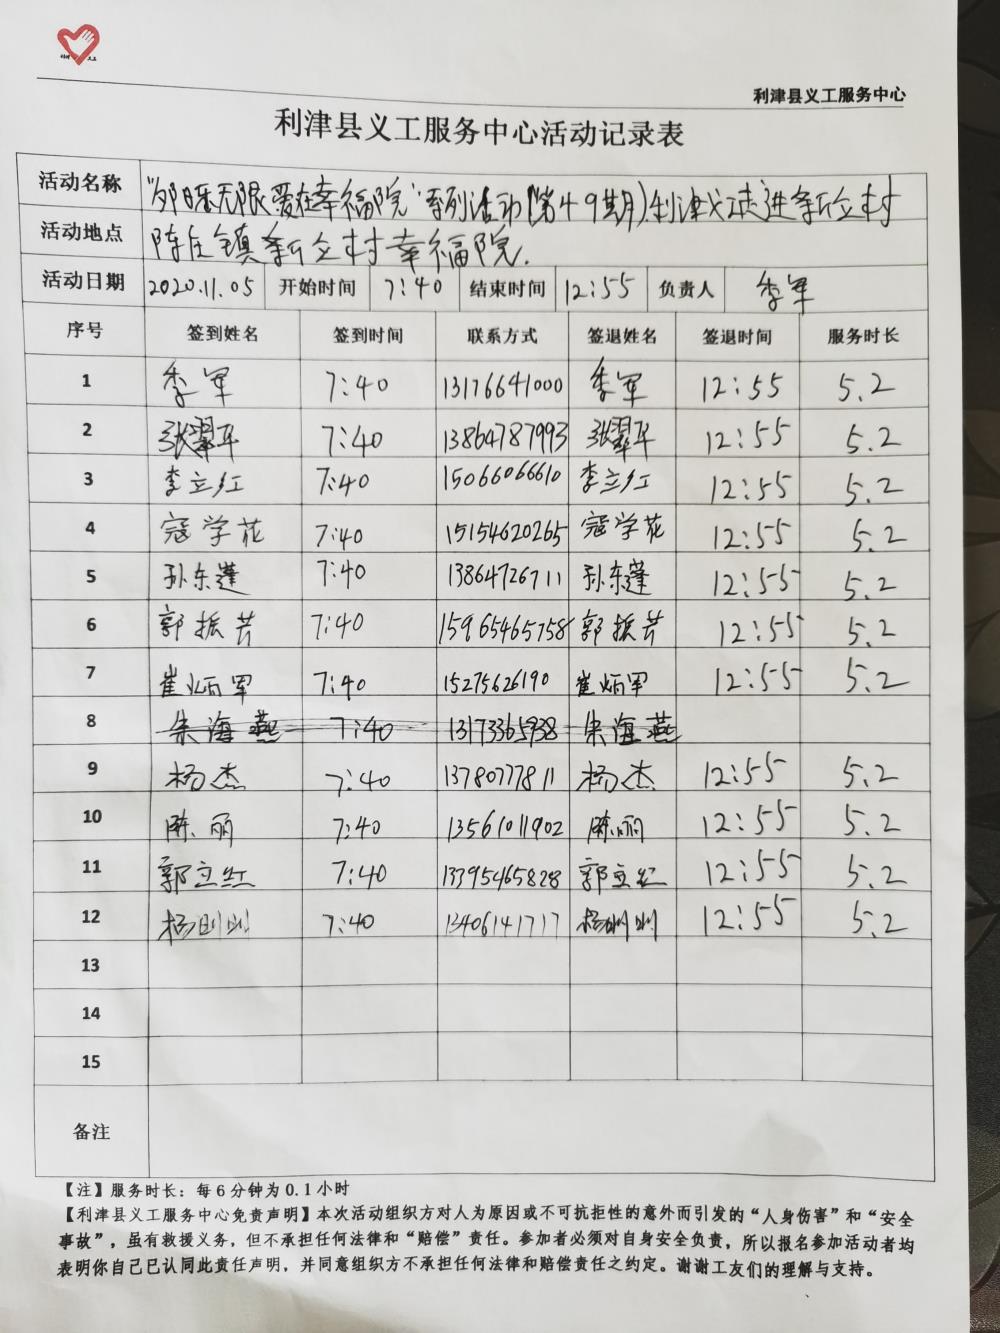 利津 义工
利津县义工服务中心
利津县义工服务中心活动记录表
活动名称 "夕阳无限 爱在幸福院"系列活动(第49期)利津义工走进新立村
活动地点 陈庄镇新立村幸福院.
活动日期 2020.11.05 开始时间 7:40 结束时间 12:55 负责人 季军
序号 签到姓名 签到时间 联系方式 签退姓名 签退时间 服务时长
1 季军 7:40 13176641000 季军 12:55 5.2
2 张翠平 7:40 13864787993 张翠平 12:55 5.2
3 李立红 7:40 15066066610 李立红 12:55 5.2
4 寇学花 7:40 15154620265 寇学花 12:55 5.2
5 孙东蓬 7:40 13864726711 孙东蓬 12:55 5.2
6 郭振芳 7:40 15965465758 郭振芳 12:55 5.2
7 崔炳军 7:40 15275626190 崔炳军 12:55 5.2
8 朱海燕 7:40 13173365938 朱海燕
9 杨杰 7:40 13780777811 杨杰 12:55 5.2
10 陈丽 7:40 13561011902 陈丽 12:55 5.2
11 郭立红 7:40 13395465828 郭立红 12:55 5.2
12 杨 7:40 13406141717 杨 12:55 5.2
13
14
15
备注
【注】服务时长：每6分钟为0.1小时
【利津县义工服务中心免责声明】本次活动组织方对人为原因或不可抗拒性的意外而引发的“人身伤害”和“安全
事故”，虽有救援义务，但不承担任何法律和“赔偿”责任。参加者必须对自身安全负责，所以报名参加活动者均
表明你自己已认同此责任声明，并同意组织方不承担任何法律和赔偿责任之约定。谢谢工友们的理解与支持。